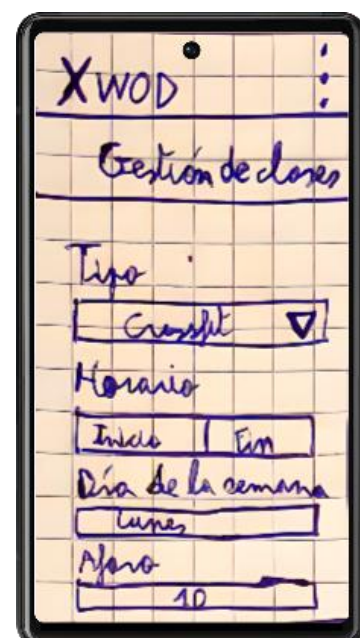 XWOD
Gestión de clases
Tipo
Crossfit
Horario
Inicio Fin
Día de la semana
Lunes
Aforo
10